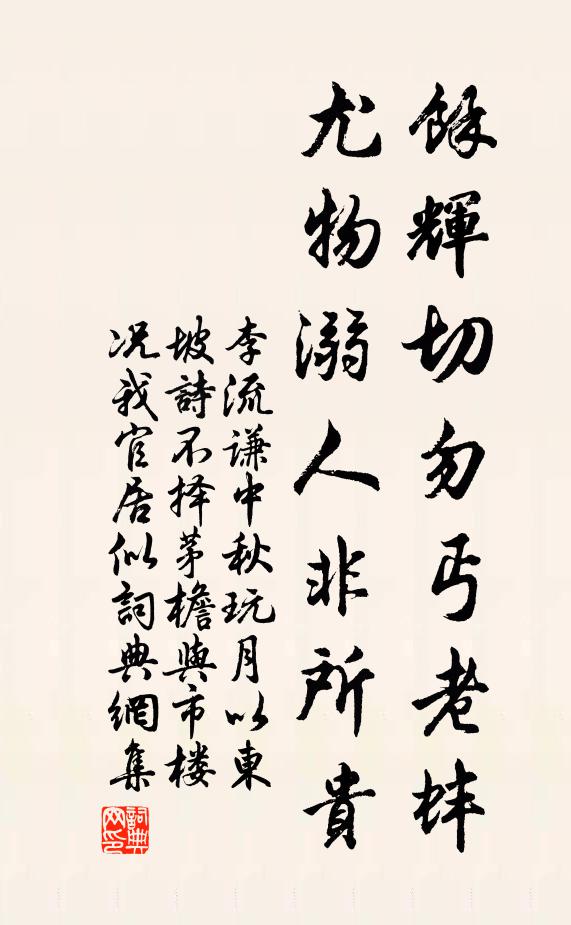 餘輝切勿丐老蚌
尤物溺人非所貴
李流謙中秋玩月以東
坡詩不择茅檐與市楼
况我官居似詞典網集
詞典网印